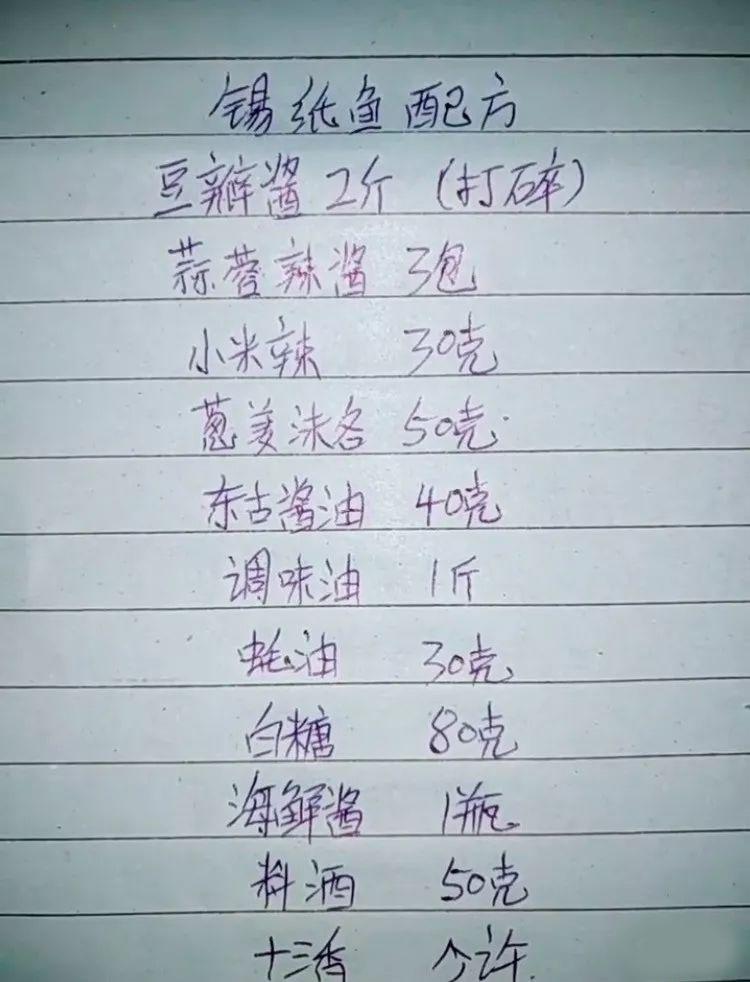 锡纸鱼配方
豆瓣酱 2斤 (打碎)
蒜蓉辣酱 3包
小米辣 30克
葱姜沫各 50克
东古酱油 40克
调味油 1斤
蚝油 30克
白糖 80克
海鲜酱 1瓶
料酒 50克
十三香 少许